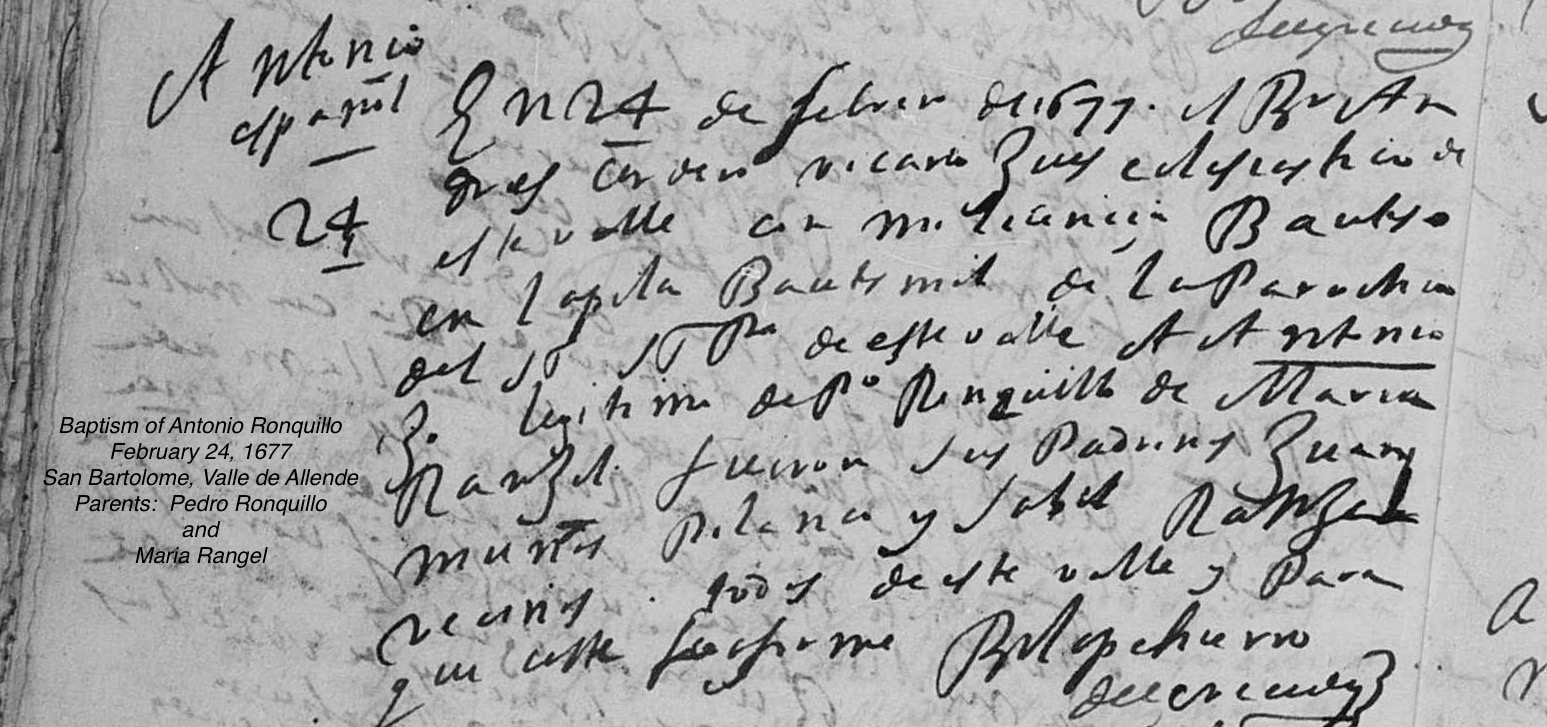 Antonio
español
24
En 24 de febrero de 1677. el Br An
dres Cordero vicario Juez eclesiastico de
este valle con mi licencia Bautiso
en la pila Bautismal de la Parochia
del de este valle A Antonio
legitimo de Po Ronquillo de Maria
Ranzel. fueron sus Padrinos Juan
muños y Isabel Ranzel
vecinos todos de este valle y Para
que coste lo firme
Baptism of Antonio Ronquillo
February 24, 1677
San Bartolome, Valle de Allende
Parents: Pedro Ronquillo
and
Maria Rangel